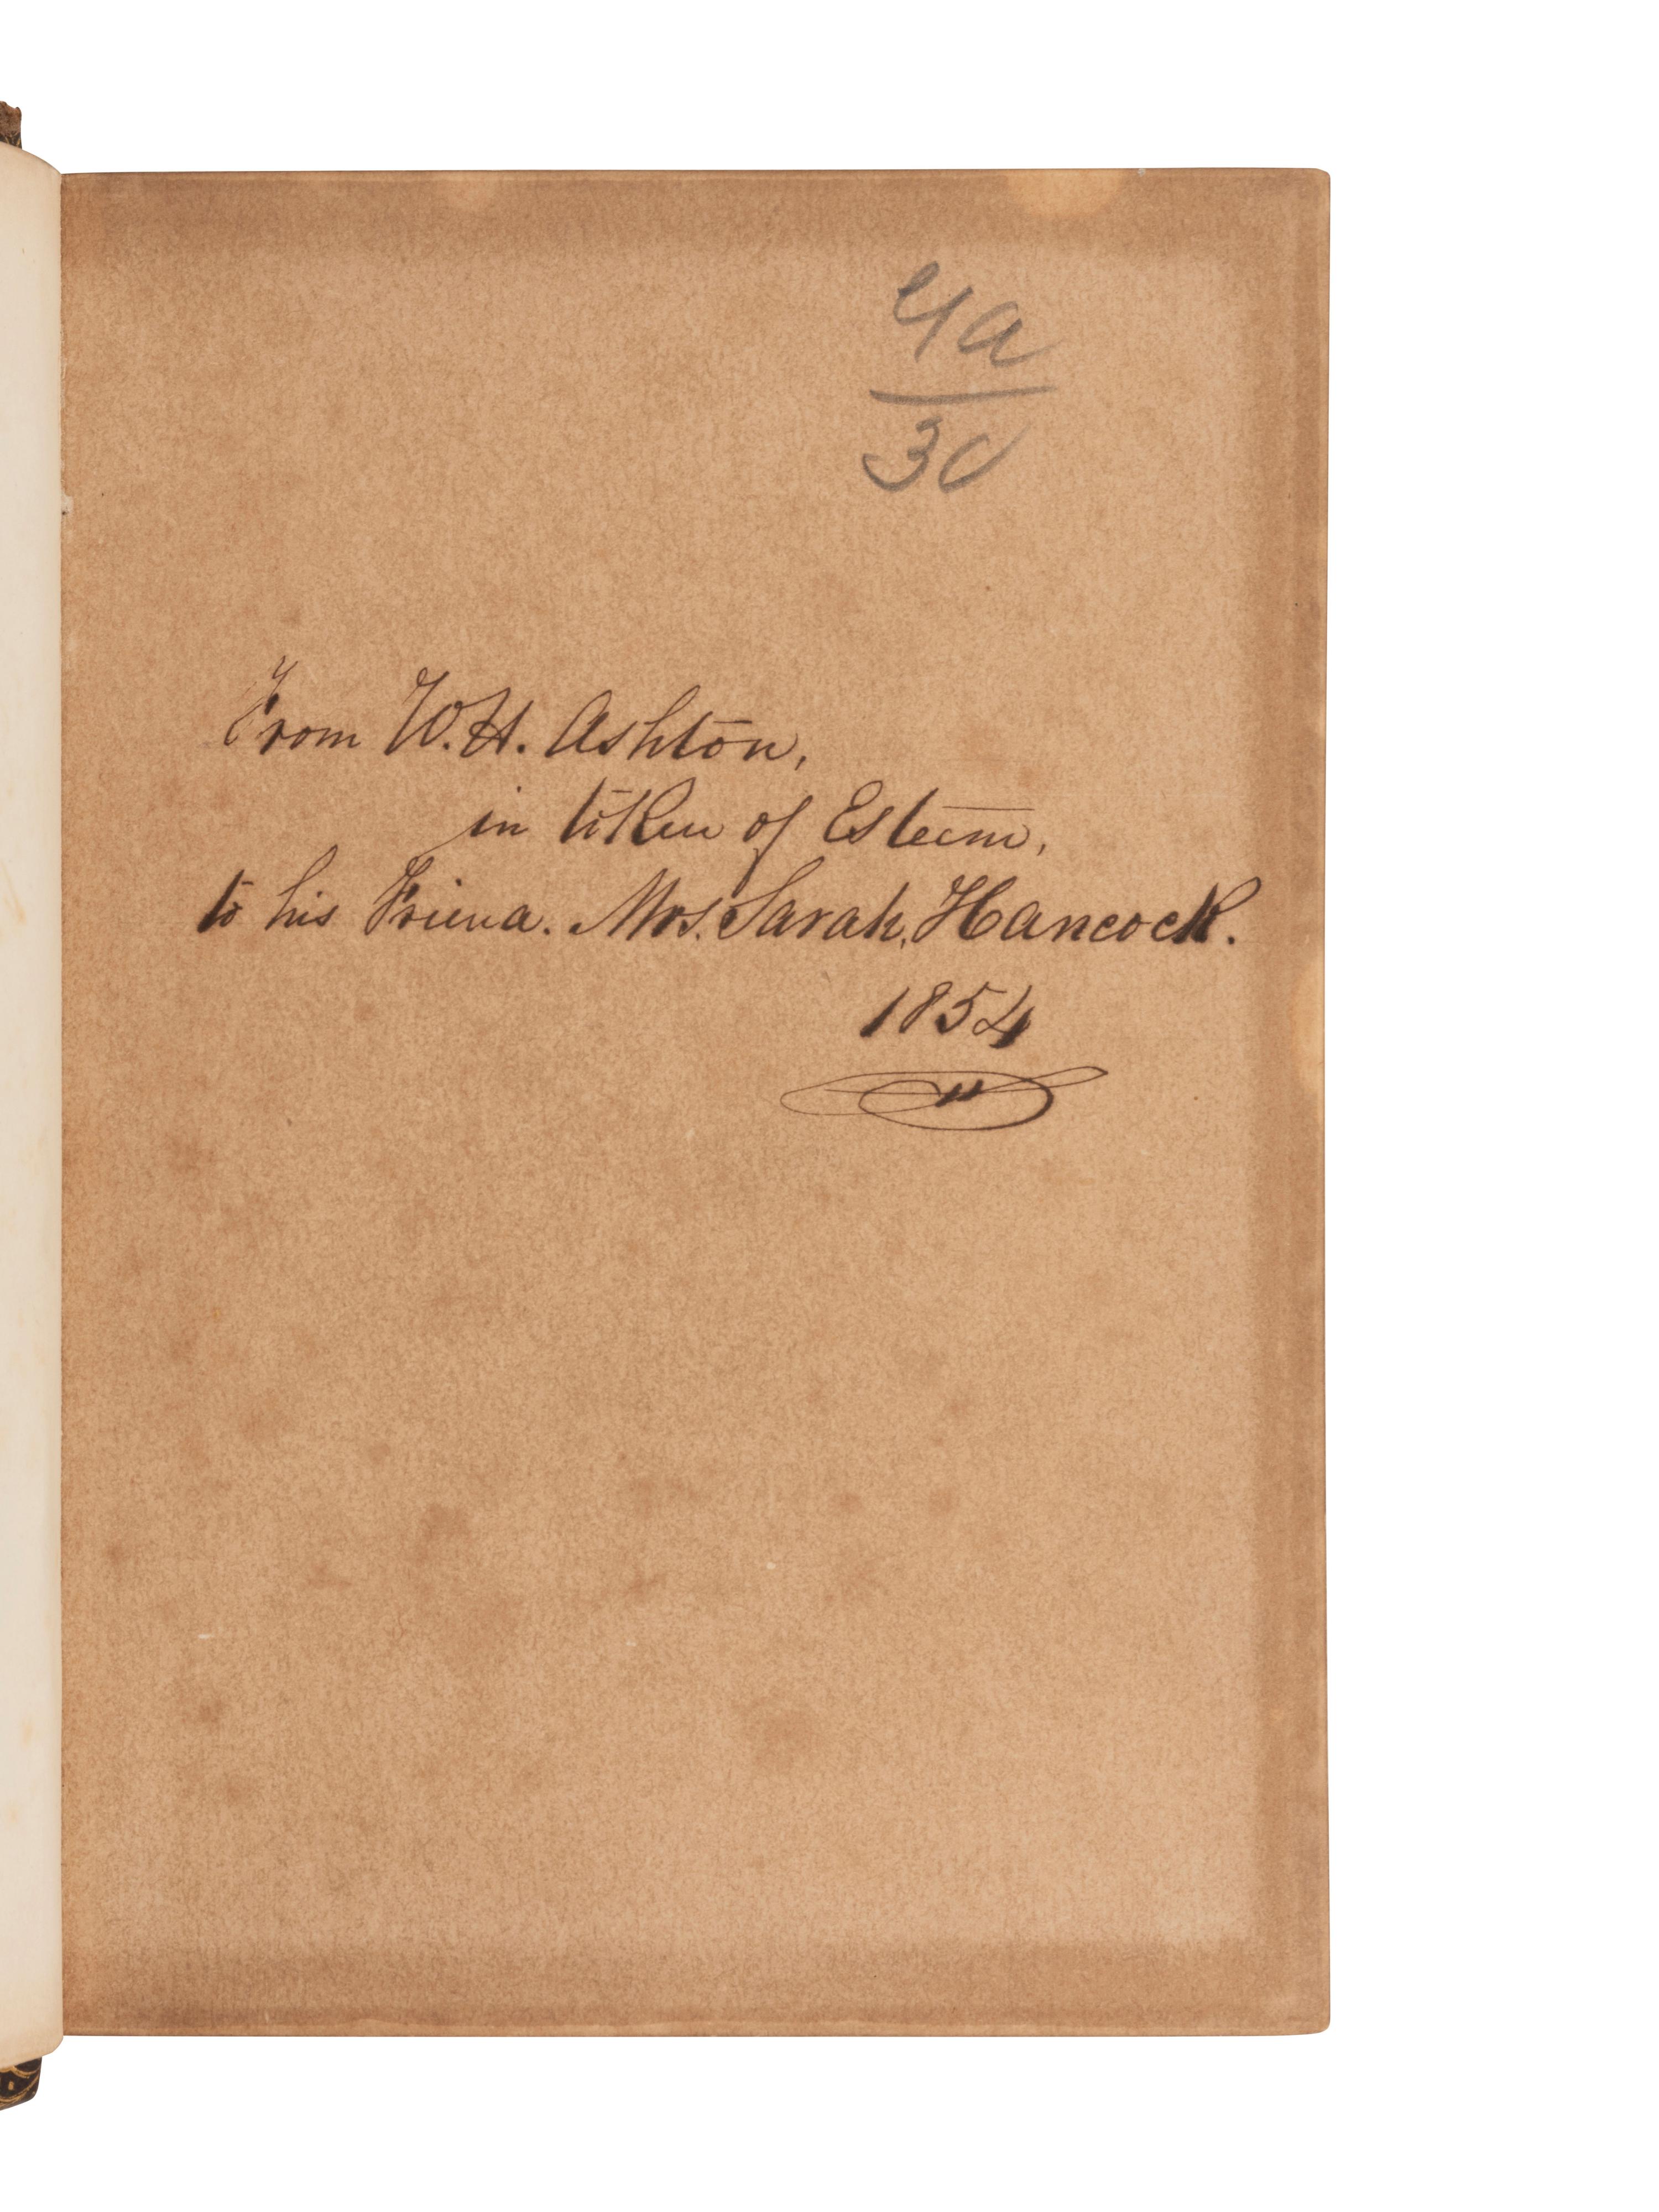 4a
30
From W. H. Ashton,
in token of Esteem,
to his Friend. Mrs. Sarah, Hancock.
1854